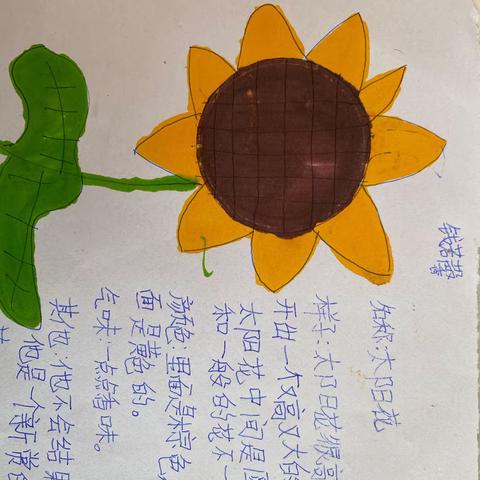 名称:太阳花
样子:太阳花很高
开出一又高又大
太阳花中间是
和一般的花不一
颜色:里面是棕色,
面是的。
气味:一点点香味。
其他:他不会结果
他是一个